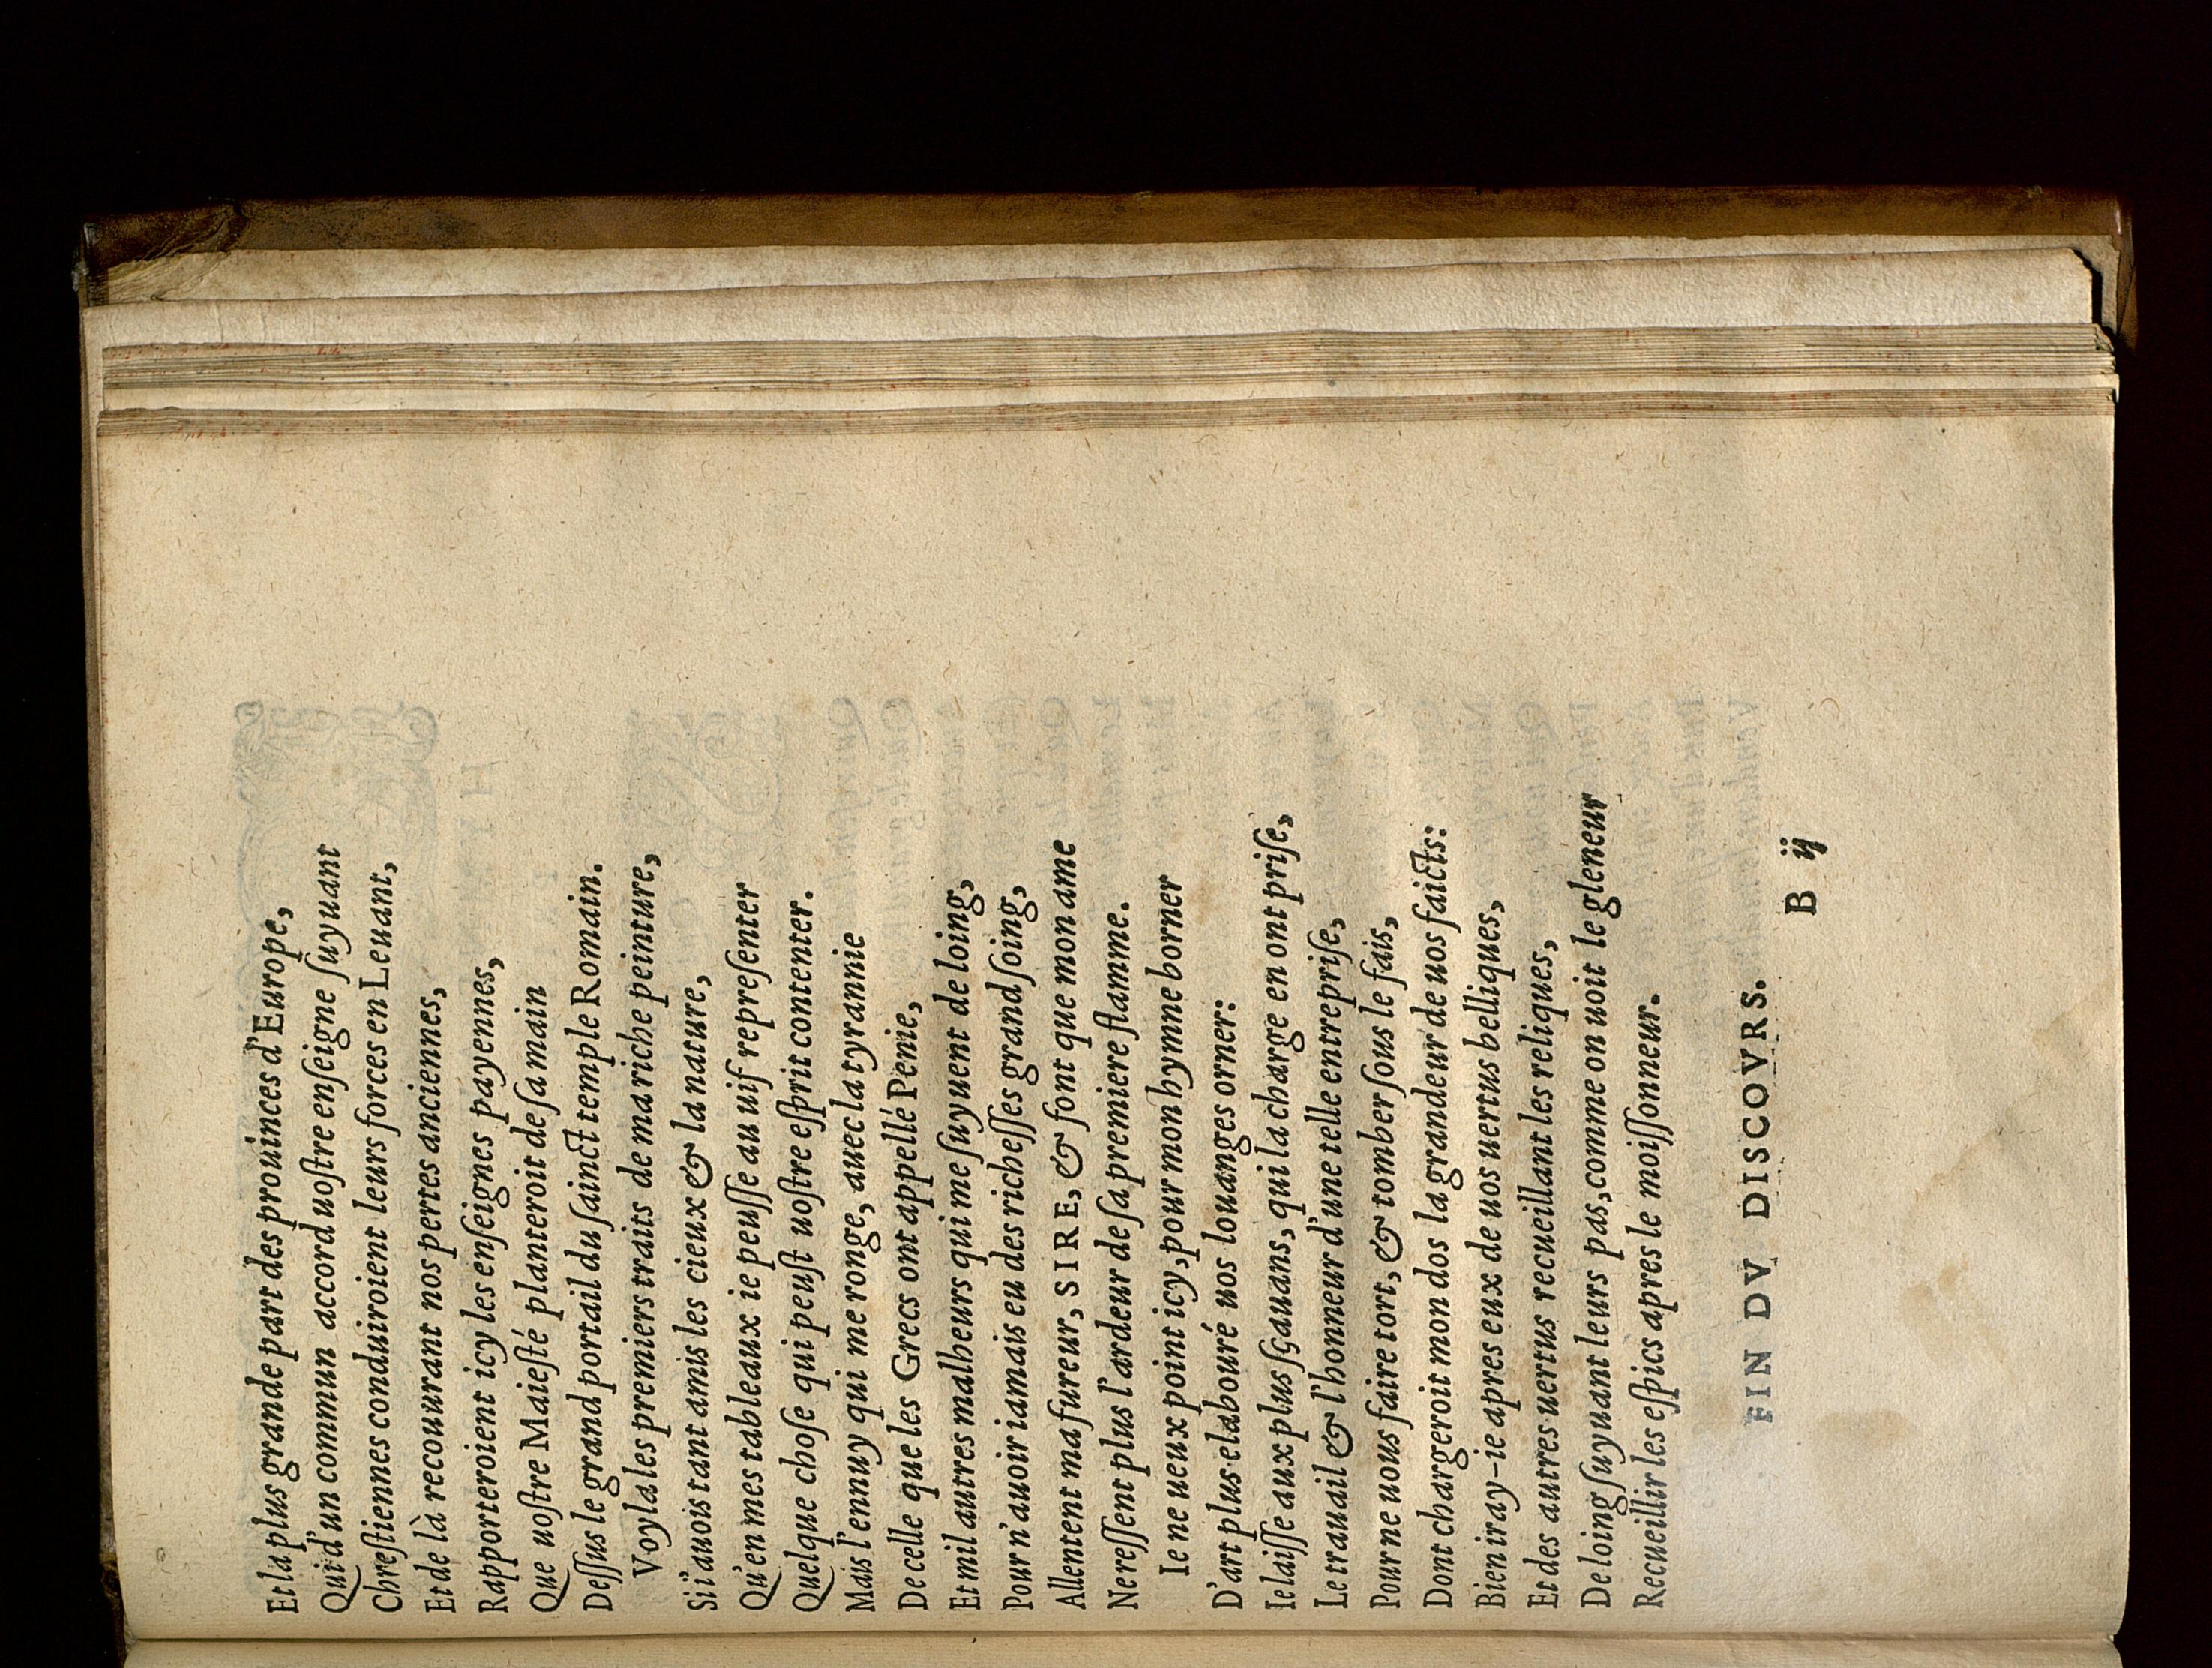 Et la plus grande part des prouinces d'Europe,
Qui d'un commun accord uoſtre enſeigne ſuyuant
Chreſtiennes conduiroient leurs forces en Leuant,
Et de là recouurant nos pertes anciennes,
Rapporteroient icy les enſeignes payennes,
Que uoſtre Maieſté planteroit de ſa main
Deſſus le grand portail du ſainct temple Romain.
Voyla les premiers traits de ma riche peinture,
Si i'auois tant amis les cieux & la nature,
Qu'en mes tableaux ie peuſſe au uif repreſenter
Quelque choſe qui peuſt uoſtre eſprit contenter.
Mais l'ennuy qui me ronge, auec la tyrannie
De celle que les Grecs ont appellé Penie,
Et mil autres malheurs qui me ſuyuent de loing,
Pour n'auoir iamais eu des richeſſes grand ſoing,
Allentent ma fureur, SIRE, & font que mon ame
Ne reſſent plus l'ardeur de ſa premiere flamme.
Ie ne ueux point icy, pour mon hymne borner
D'art plus elabouré uos louanges orner:
Ie laiſſe aux plus ſçauans, qui la charge en ont priſe,
Le trauail & l'honneur d'une telle entrepriſe,
Pour ne uous faire tort, & tomber ſous le fais,
Dont chargeroit mon dos la grandeur de uos faicts:
Bien iray-ie apres eux de uos uertus belliques,
Et des autres uertus recueillant les reliques,
De loing ſuyuant leurs pas, comme on uoit le gleneur
Recueillir les eſpics apres le moiſſonneur.
FIN DV DISCOVRS.
B ij